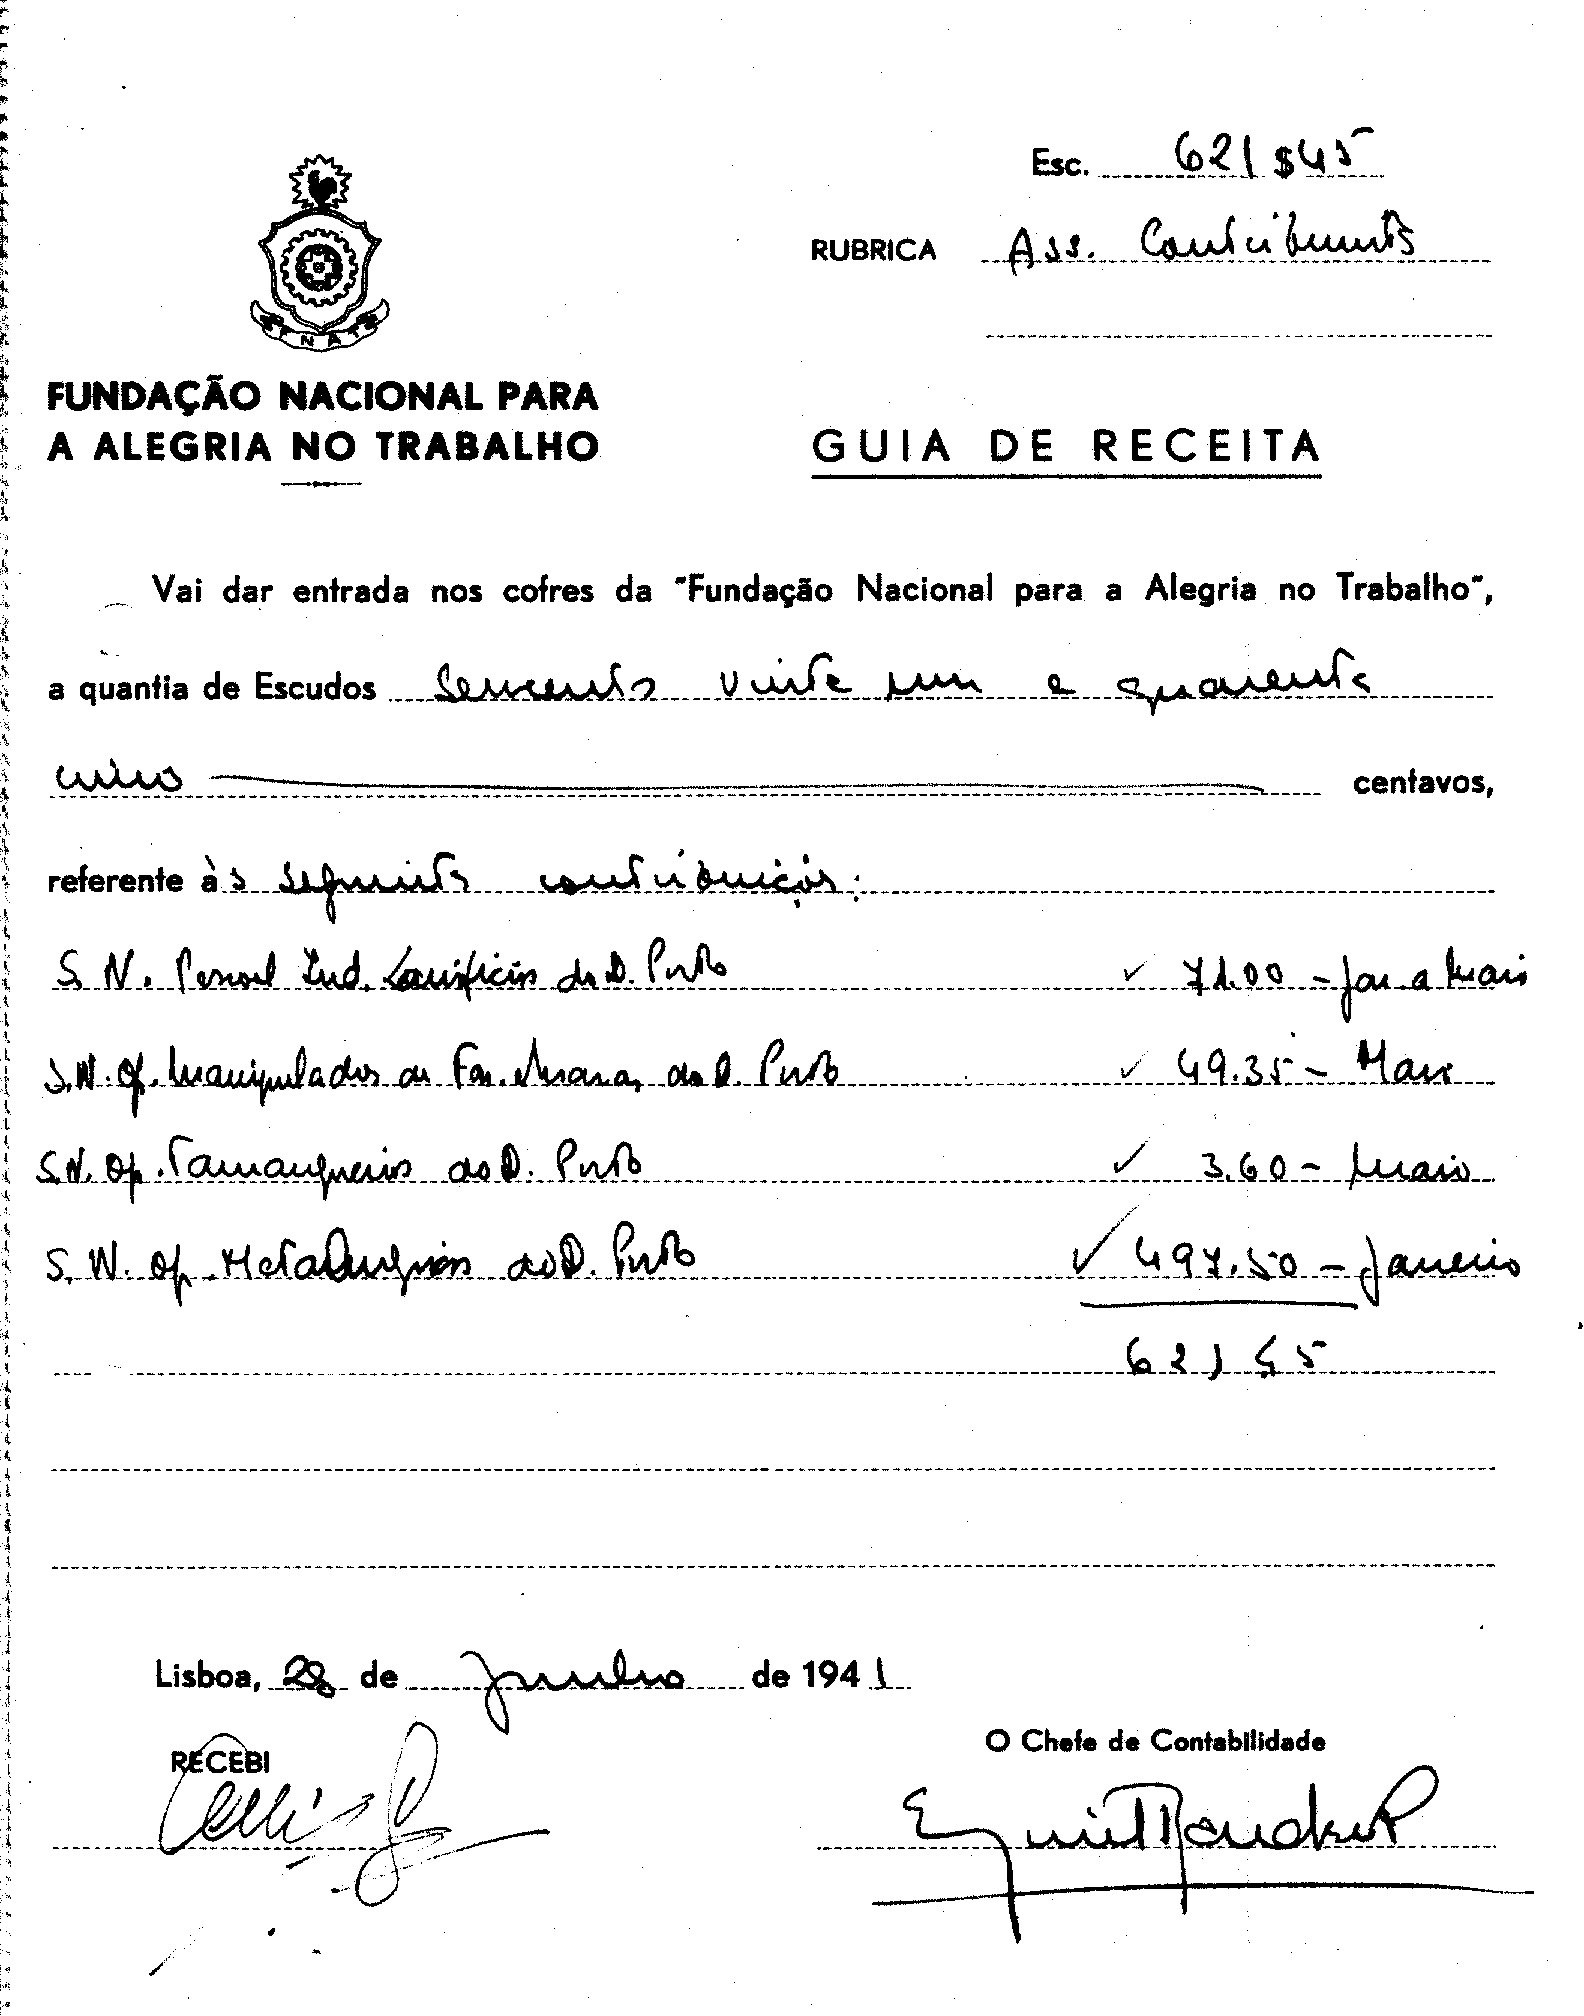 Esc. 621$45
RUBRICA Ass. Contribuintes
FNAT
FUNDAÇÃO NACIONAL PARA
A ALEGRIA NO TRABALHO
GUIA DE RECEITA
Vai dar entrada nos cofres da "Fundação Nacional para a Alegria no Trabalho",
a quantia de Escudos seiscentos vinte um e quarenta
cinco centavos,
referente às seguintes contribuições:
S. N. Pessoal Ind. Lanifícios do D. Porto 71.00 - Jan. a Maio
S.N. Op. Manipuladores de do D. Porto 49.35 - Maio
S.N. Op. Tamanqueiros do D. Porto 3.60 - Maio
S. N. Op. Metalurgicos do D. Porto 497.50 - Janeiro
621.45
Lisboa, 28 de Junho de 1941
RECEBI
O Chefe de Contabilidade